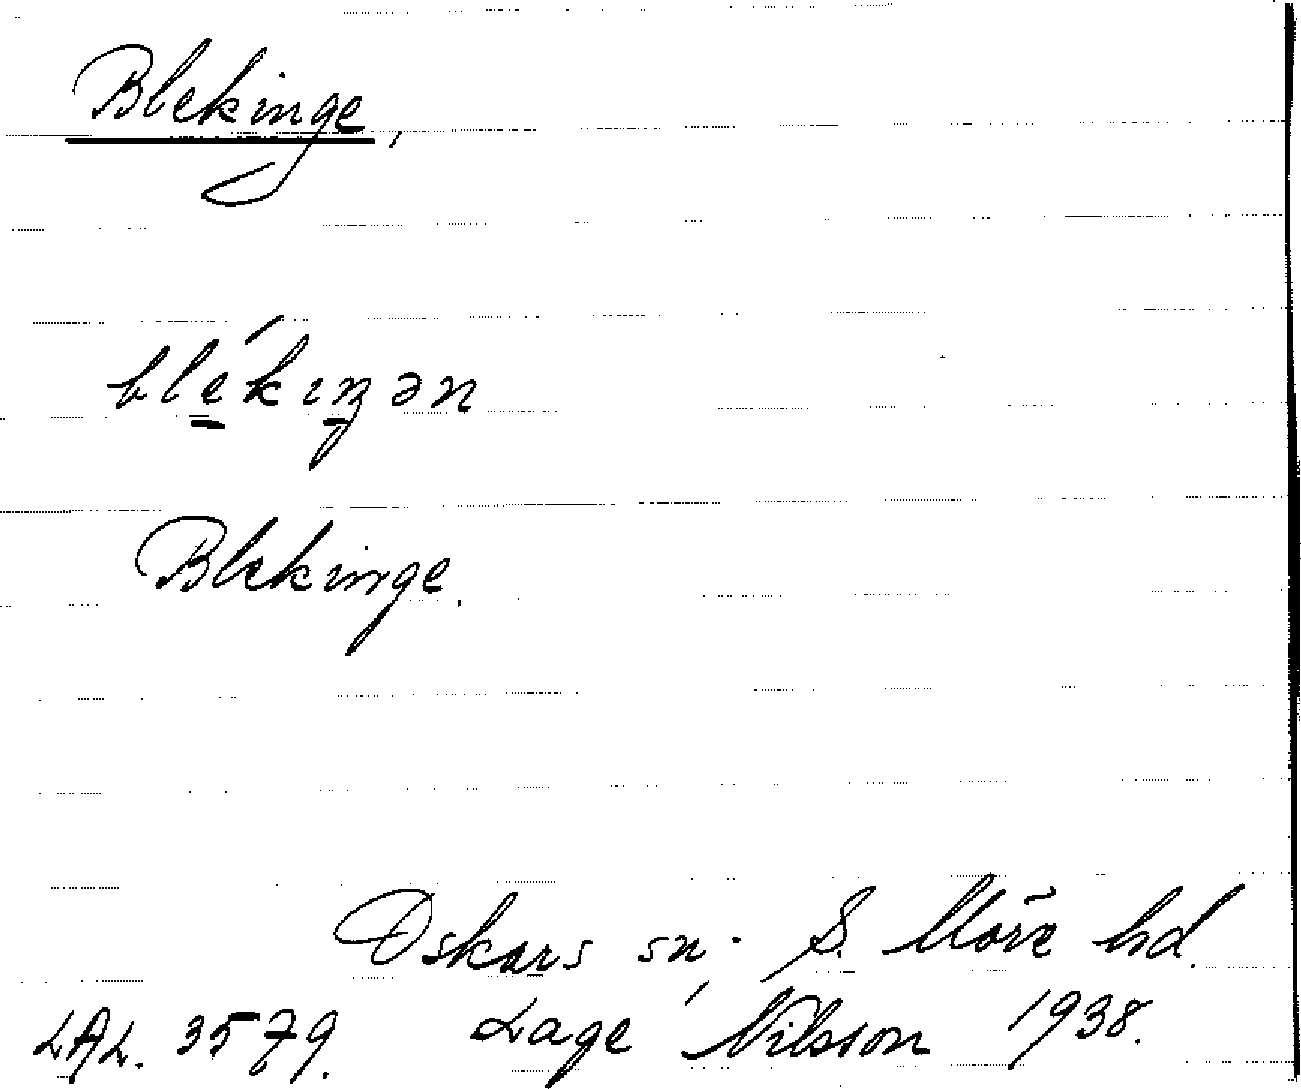 Blekinge,
blékıŋən
Blekinge.
Oskars sn. S. Möre hd.
LAL. 3579. Lage Nilsson 1938.